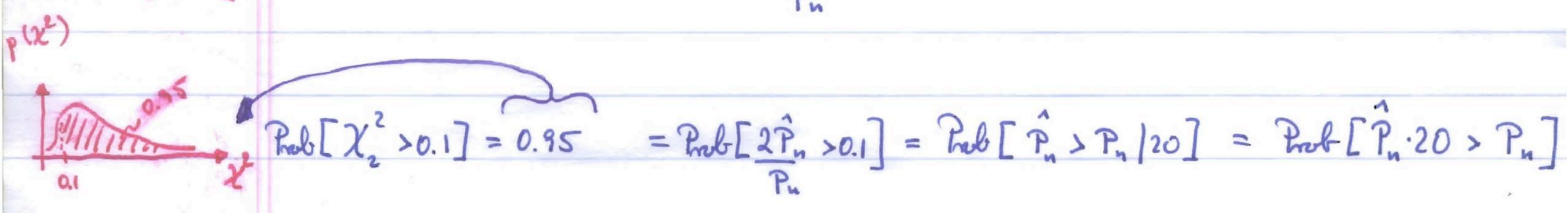 Pₙ
p(χ²)
0.95
Prob[χ₂² >0.1] = 0.95 = Prob[2P̂ₙ/Pₙ >0.1] = Prob[P̂ₙ > Pₙ/20] = Prob[P̂ₙ·20 > Pₙ]
0.1 χ²